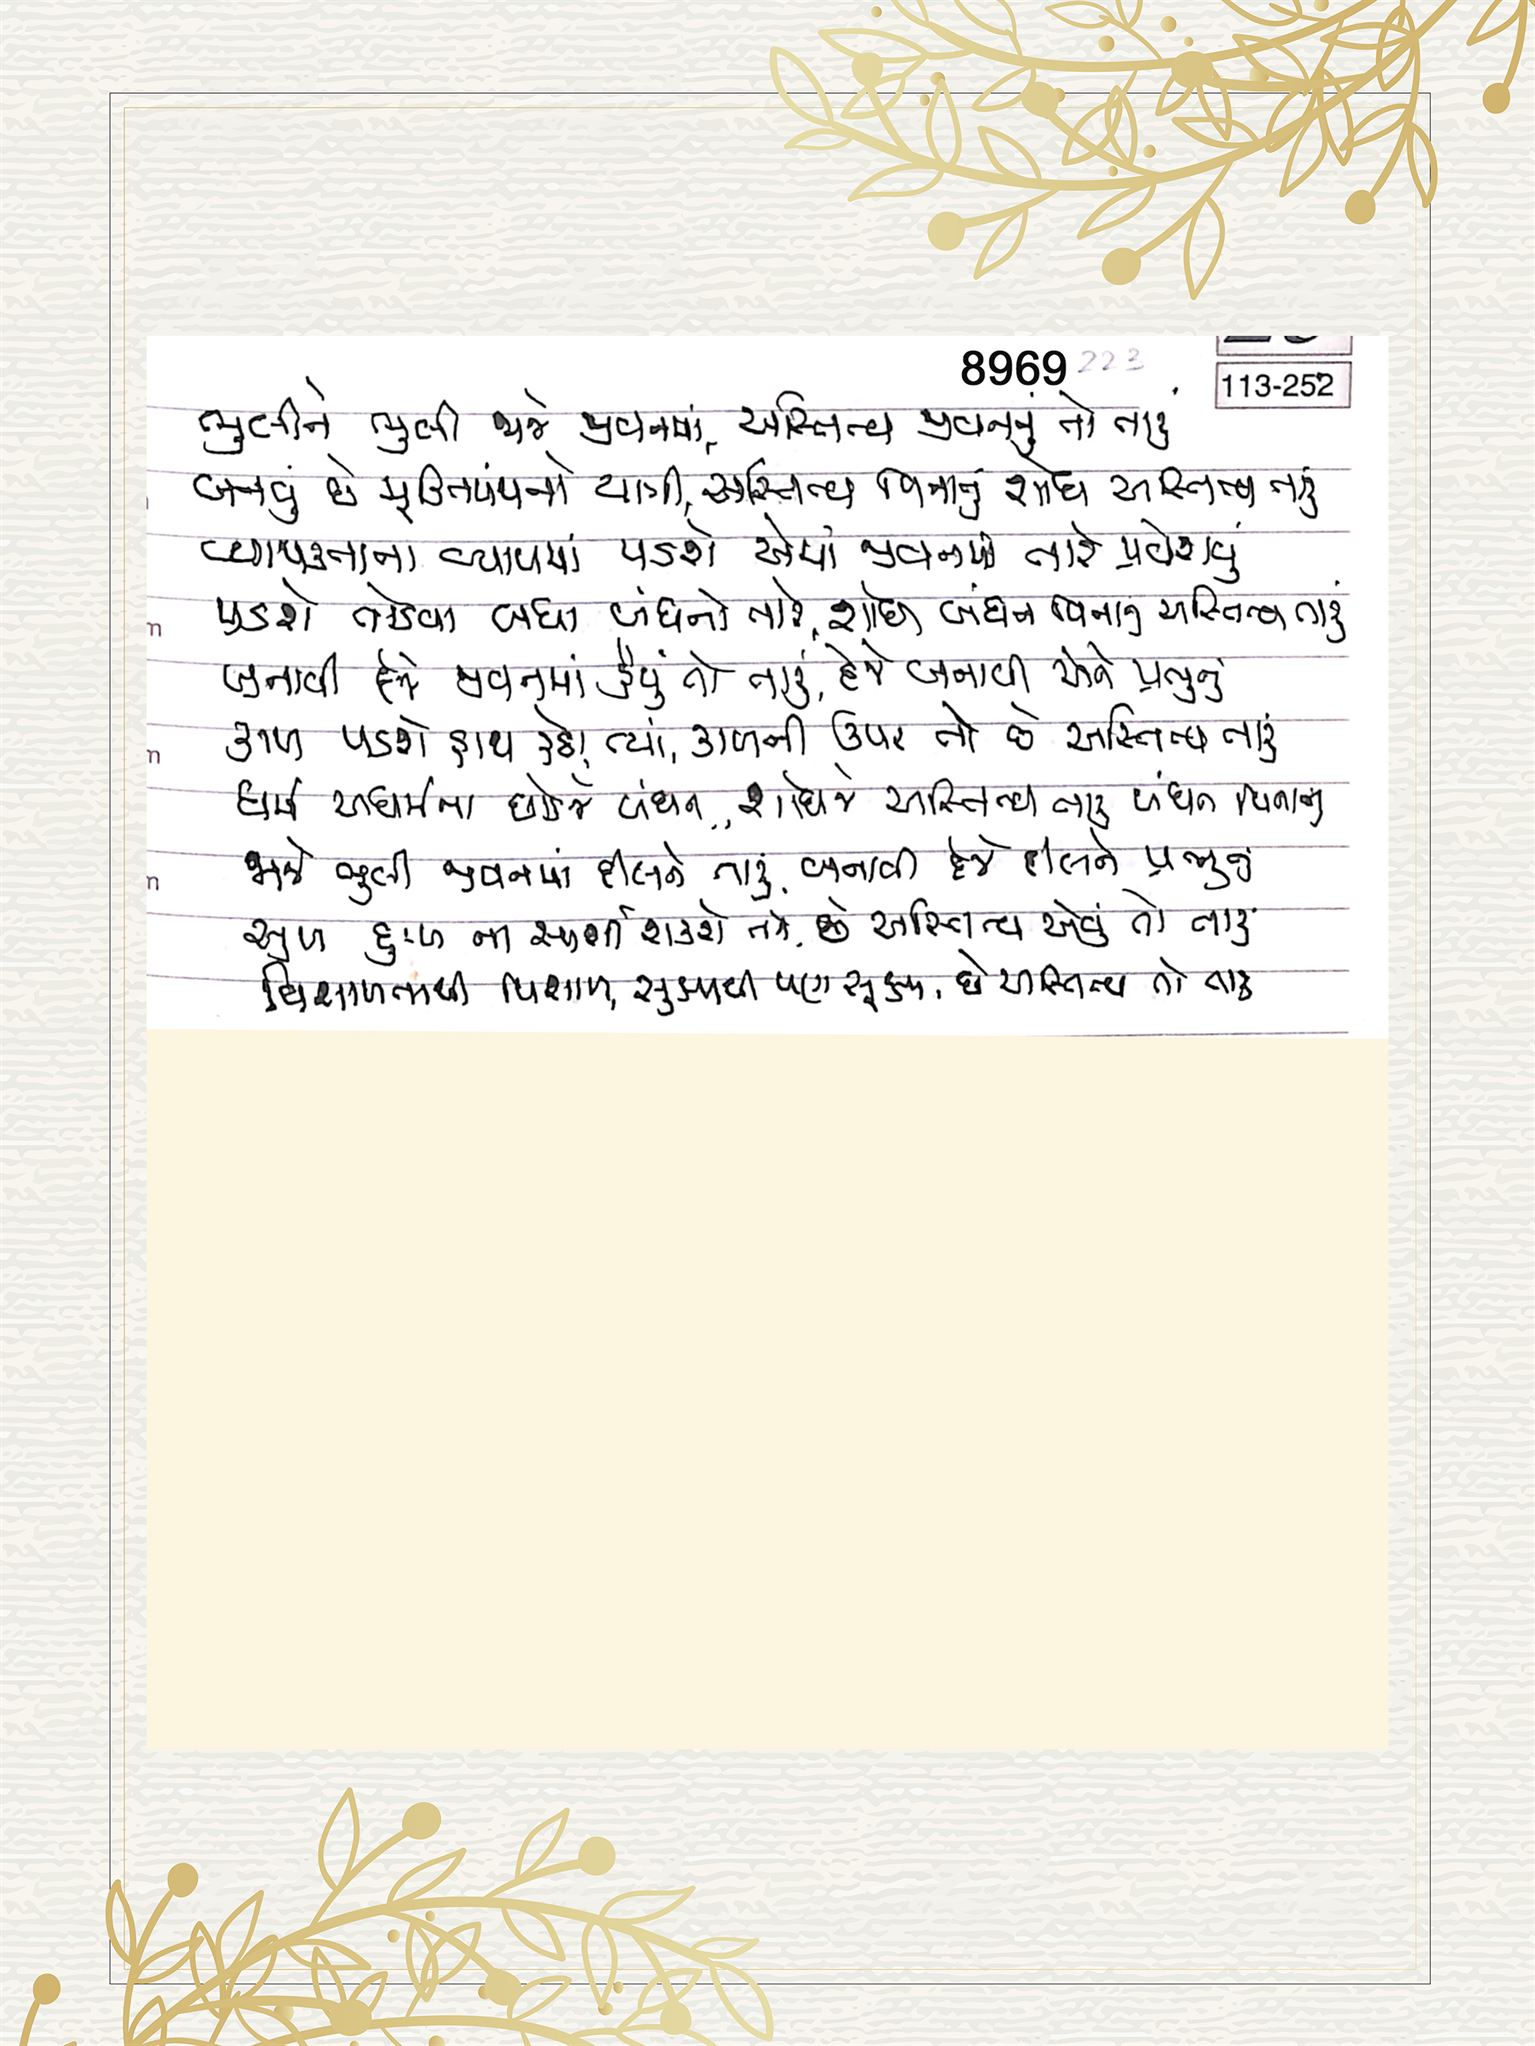 8969 223
113-252
ભુલીને ભુલી જાજે જીવનમાં, અસ્તિત્વ જીવનનું તો તારું
બનવું છે મુક્તિપંથનો યાત્રી, અસ્તિત્વ વિનાનું શોધ અસ્તિત્વ તારું
વ્યાપકતાના વ્યાપમાં પડશે એમાં જીવનમાં તારે પ્રવેશવું
પડશે તોડવા બધા બંધનો તારે, શોધ બંધન વિનાનુ અસ્તિત્વ તારું
બનાવી દેજે જીવનમાં હૈયું તો તારું, દેજે બનાવી એને પ્રભુનું
કાળ પડશે હાથ હેઠા ત્યાં, કાળની ઉપર તો છે અસ્તિત્વ તારું
ધર્મ અધર્મના છોડજે બંધન, શોધજે અસ્તિત્વ તારુ બંધન વિનાનુ
જાજે ભુલી જીવનમાં દીલને તારું, બનાવી દેજે દીલને પ્રભુનું
સુખ દુઃખ ના સ્પર્શી શકશે તને, છે અસ્તિત્વ એવું તો તારું
વિશાળતાથી વિશાળ, સુક્ષ્મથી પણ સૂક્ષ્મ, છે અસ્તિત્વ તો તારુ